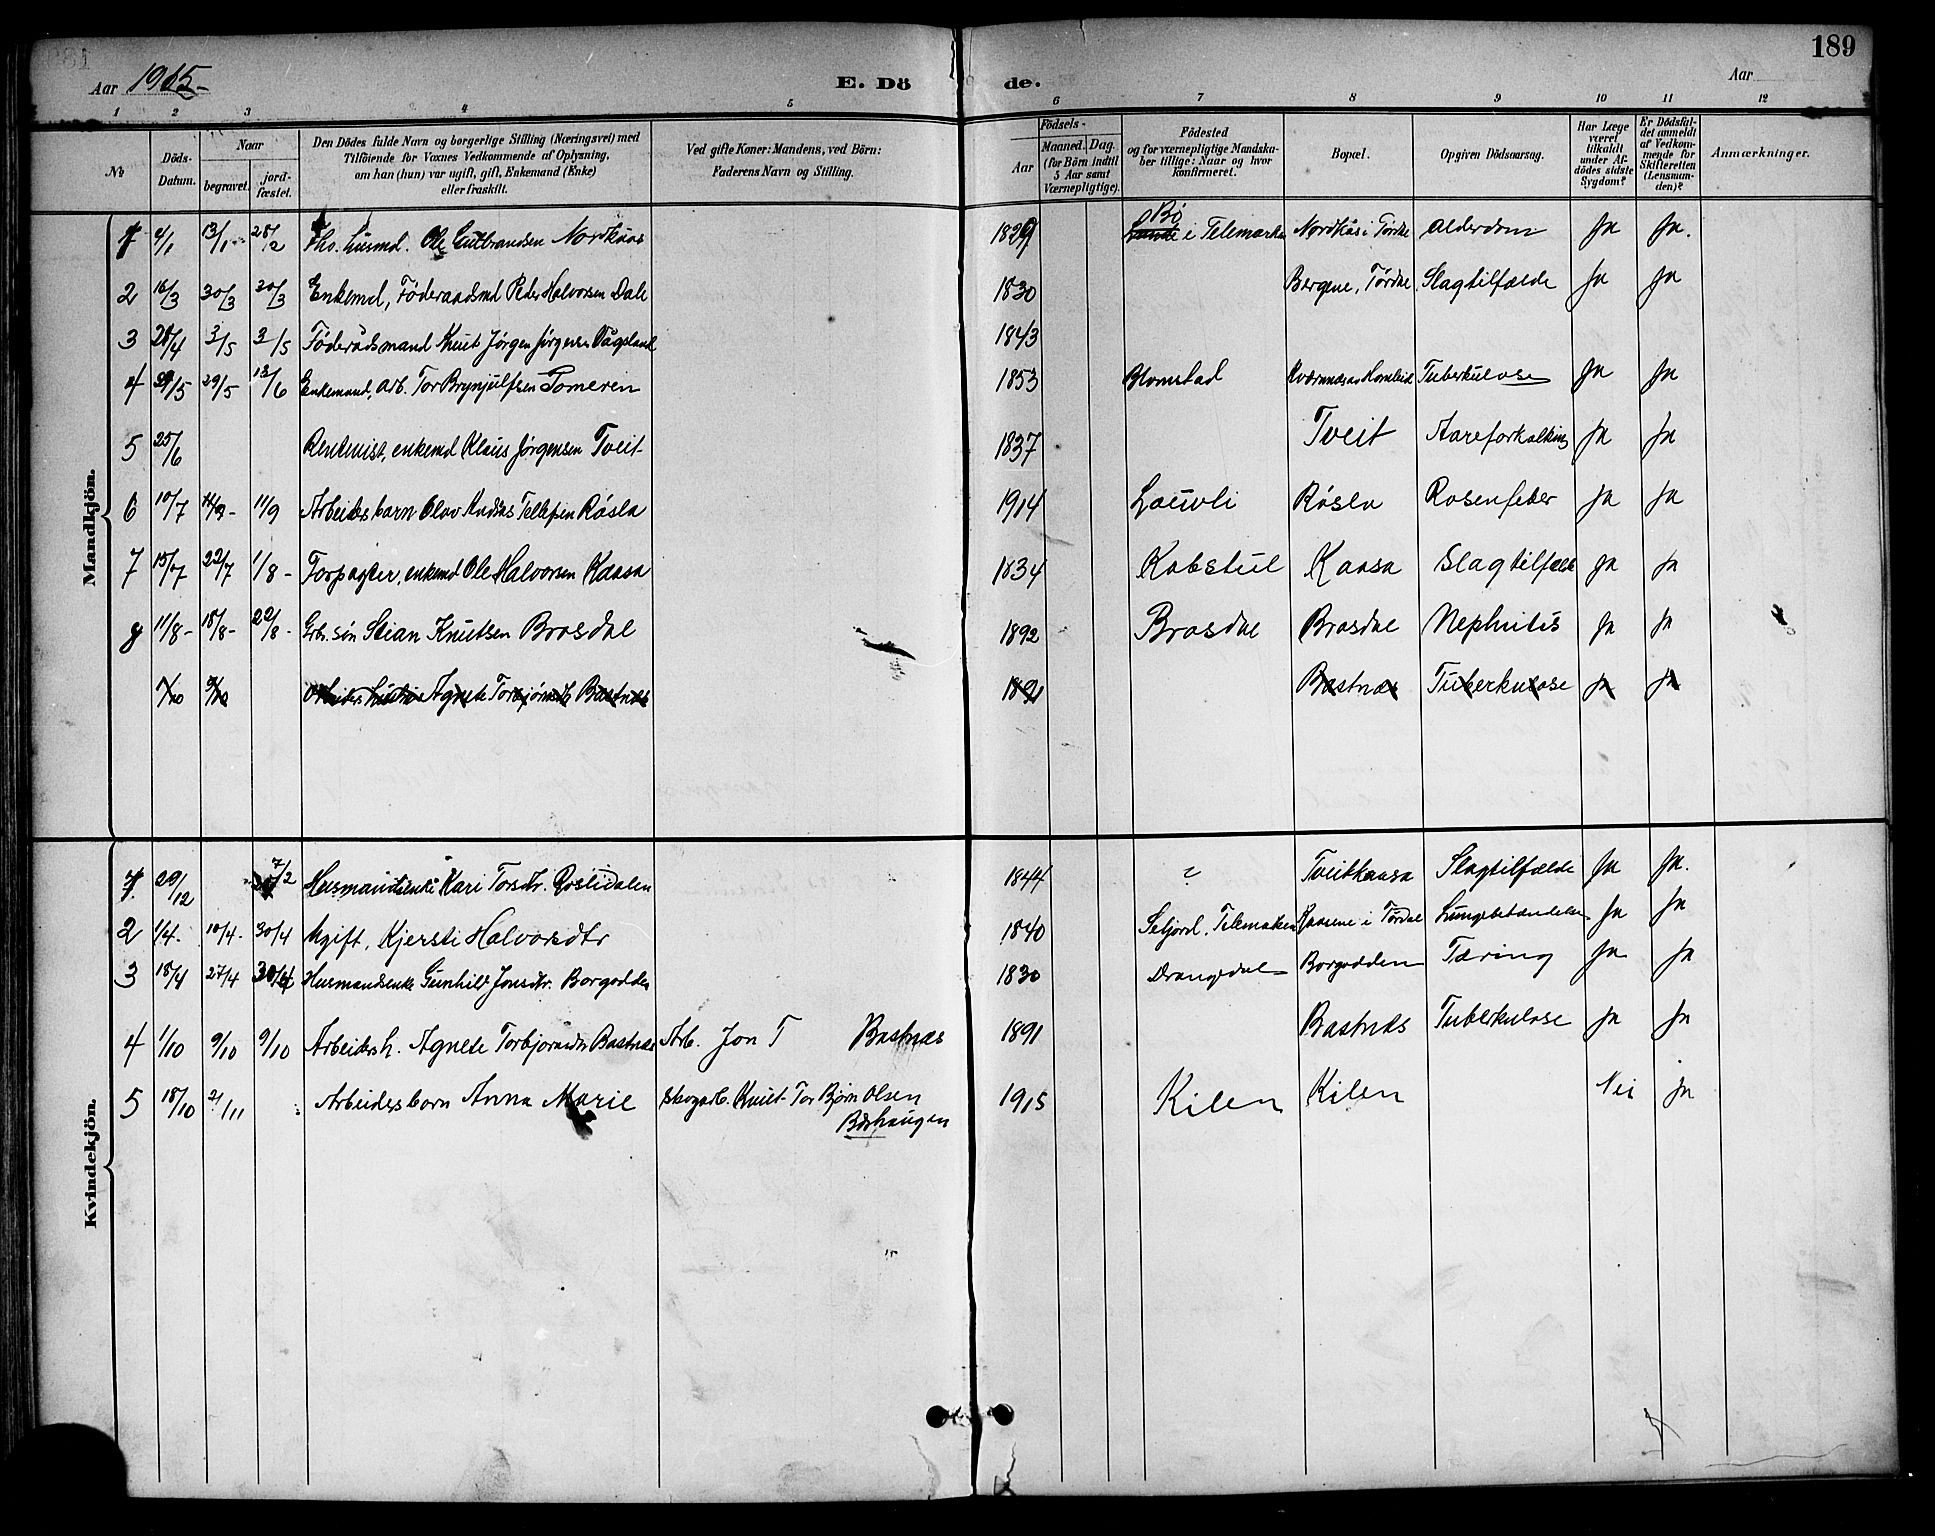 189
Aar 1915-
E. Dö de.
Aar
1 2 3 4 5 6 7 8 9 10 11 12
No
Döds-Datum.
Naar
begravet.
jordfæstet.
Den Dödes fulde Navn og borgerlige Stilling (Næringsvei) med
Tilföiende for Voxnes Vedkommende af Oplysning,
om han (hun) var ugift, gift, Enkemand (Enke)
eller fraskilt.
Ved gifte Koner: Mandens, ved Börn:
Faderens Navn og Stilling.
Födsels-
Aar
Maaned. Dag.
(for Börn indtil
5 Aar samt
Værnepligtige).
Födested
og for værnepligtige Mandskaber tillige: Naar og hvor
konfirmeret.
Bopæl.
Opgiven Dödsaarsag.
Har Læge
været
tilkaldt
under Afdödes sidste
Sygdom?
Er Dödsfaldet anmeldt
af Vedkommende for
Skifteretten
(Lensmanden)?
Anmærkninger.
Mandkjön.
1 4/1 13/1 28/2 Fho. husmd. Ole Gulbrandsen Nordkaas 1829 Bø i Telemarken Nordkås i Tørdal Alderdom Ja Ja.
2 16/3 30/3 30/3 Enkemd, Föderaadsmd Peder Halvorsen Dale 1830 Bergene, Tørdal Slagtilfælde Ja Ja
3 28/4 3/5 3/5 Föderådsmand Knut Jørgen Jørgensen Vågsland 1843
4 5 29/5 13/6 Enkemand, Arb. Tor Brynjulfsen Tomeren 1853 Blomstad Tuberkulose Ja Ja
5 25/6 Rentenist, enkemd Klaus Jørgensen Tveit 1837 Tveit Aareforkalkning Ja Ja
6 10/7 11/9 - 11/9 Arbeidersbarn Olav Andreas Tellefsen Råsla 1914 Lauvli Råsla Rosenfeber Ja Ja
7 15/7 22/7 1/8 - Forpagter, enkemd Ole Halvorsen Kaasa 1834 Kabstul Kaasa Slagtilfælde Ja Ja
8 11/8 - 18/8 - 22/8 - Grb. søn Stian Knutsen Brosdal 1892 Brosdal Brosdal Nephritis Ja Ja
1/10 9/10 Arbeiders hustru Agnete Torbjørnsdtr Bastnæs 1891 Bastnæs Tuberkulose Ja Ja
Kvindekjön.
1. 29/12 7/2 Husmandsenke Kari Torsdtr. Roslidalen 1844 ? Tveitkaasa Slagtilfælde Ja Ja.
2 1/4. 10/4. 30/4 Ugift, Kjersti Halvorsdtr 1840 Seljord, Telemarken Kaasene i Tørdal Lungebetændelse Ja Ja
3 18/4 27/4 30/4 Husmandsenke Gunhild Jonsdtr. Borgodden 1830 Drangedal Borgodden Tæring Ja Ja
4 1/10 9/10 9/10 Arbeidersh. Agnete Torbjørnsdtr Bastnæs Arb. Jon T Bastnæs 1891 Bastnæs Tuberkulose Ja Ja
5 18/10 21/11 Arbeidersbarn Anna Marie Skogarb. Knut Tor Bjørn Olsen 1915 Kilen Kilen Nei Ja
Bærhaugen